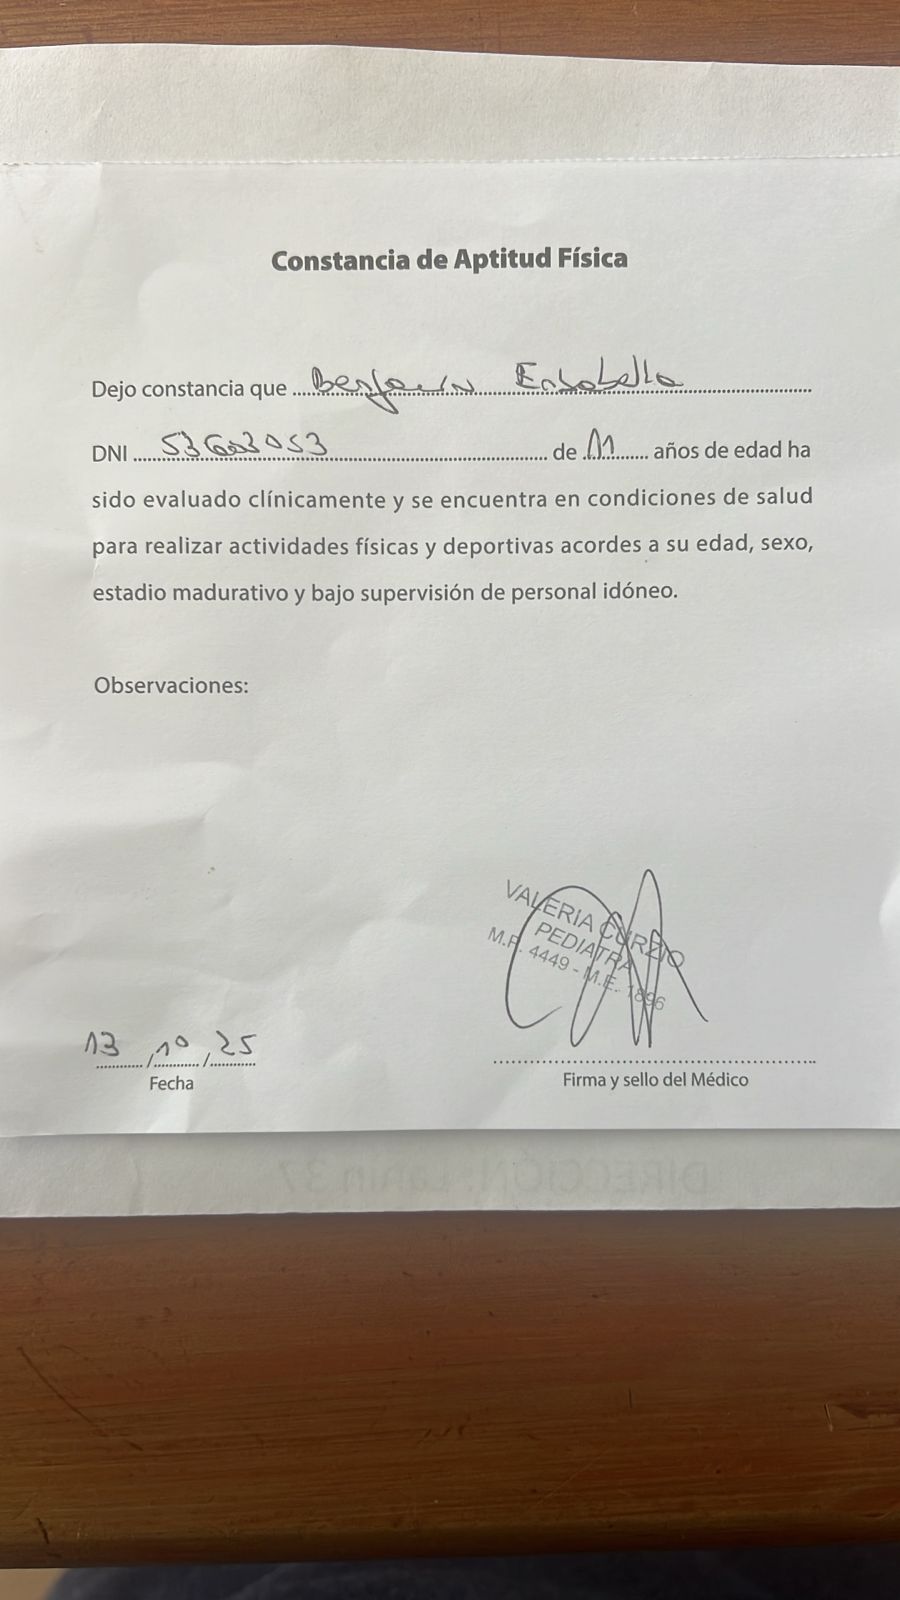 Constancia de Aptitud Física
Dejo constancia que Benjamin
DNI 53603053 de 11 años de edad ha
sido evaluado clínicamente y se encuentra en condiciones de salud
para realizar actividades físicas y deportivas acordes a su edad, sexo,
estadio madurativo y bajo supervisión de personal idóneo.
Observaciones:
VALERIA CURZIO
PEDIATRA
M.P. 4449 - M.E. 1896
13 / 10 / 25
Fecha
Firma y sello del Médico
DIRECCIÓN: Lanin 37